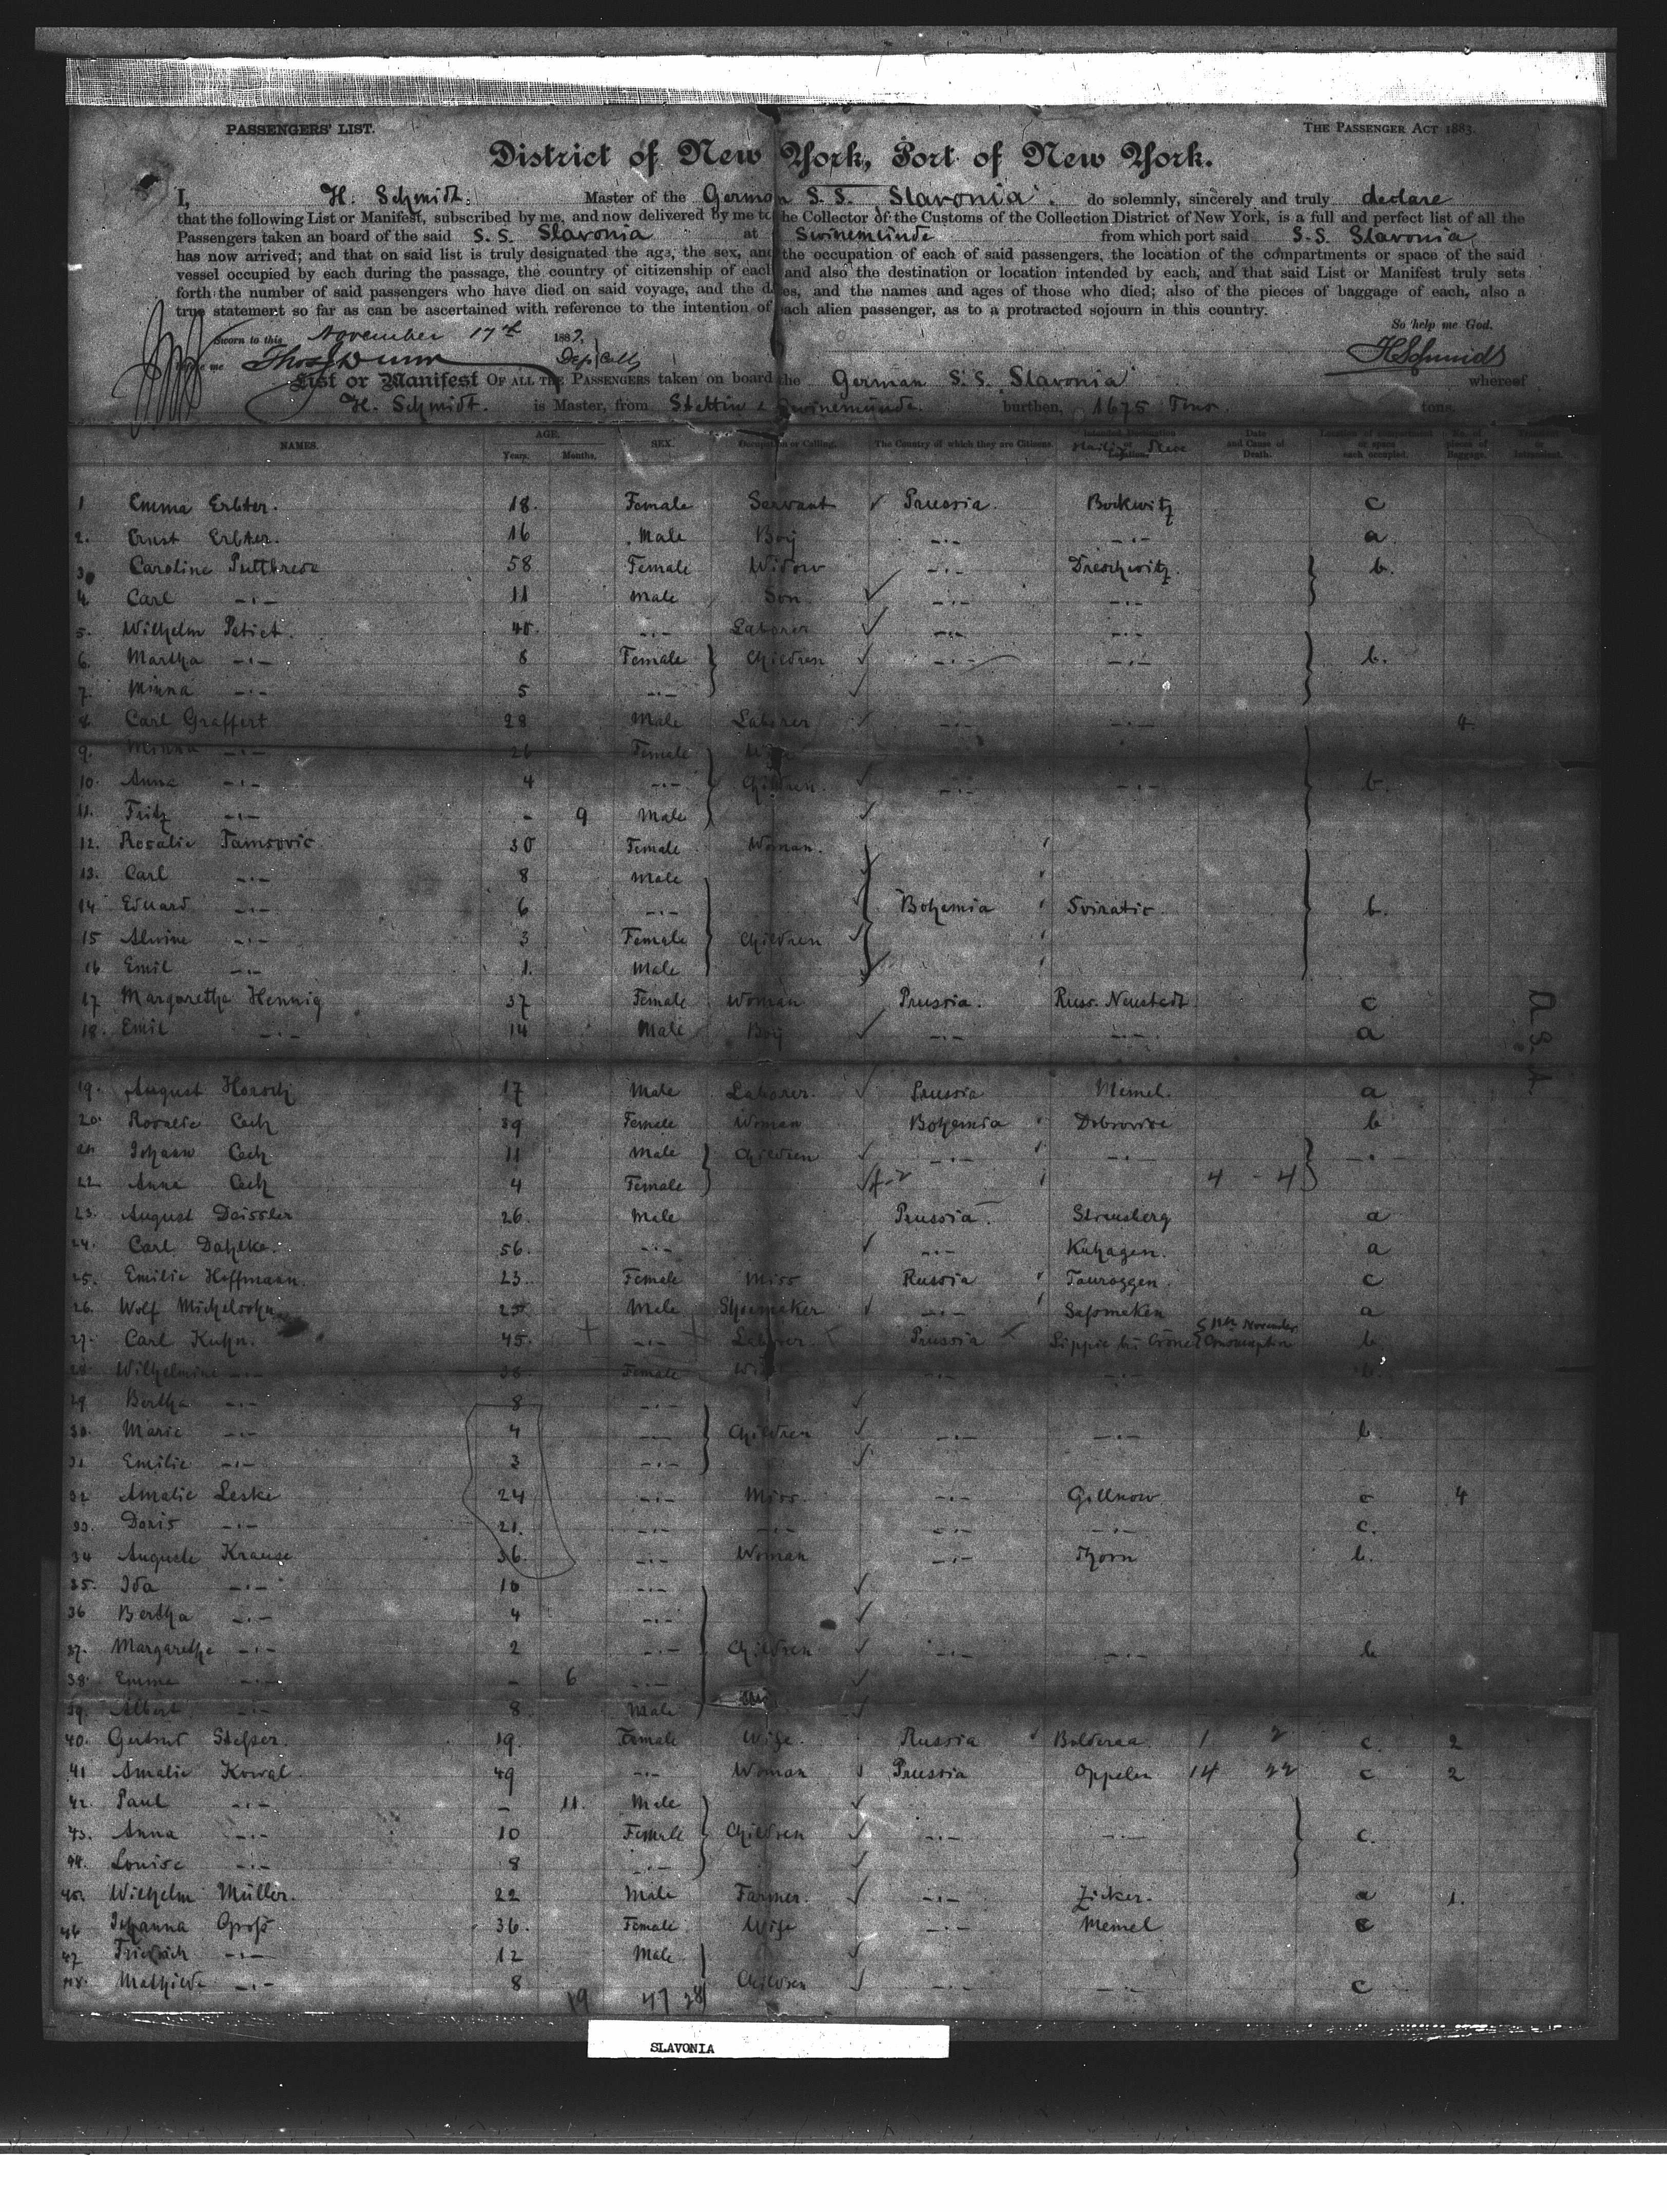 PASSENGERS' LIST.
THE PASSENGER ACT 1883.
District of New York, Port of New York.
I, H. Schmidt. Master of the German S. S. Slavonia. do solemnly, sincerely and truly declare
that the following List or Manifest, subscribed by me, and now delivered by me to the Collector of the Customs of the Collection District of New York, is a full and perfect list of all the
Passengers taken an board of the said S. S. Slavonia at Swinemünde from which port said S. S. Slavonia
has now arrived; and that on said list is truly designated the age, the sex, and the occupation of each of said passengers, the location of the compartments or space of the said
vessel occupied by each during the passage, the country of citizenship of each and also the destination or location intended by each, and that said List or Manifest truly sets
forth the number of said passengers who have died on said voyage, and the dates, and the names and ages of those who died; also of the pieces of baggage of each, also a
true statement so far as can be ascertained with reference to the intention of each alien passenger, as to a protracted sojourn in this country.
So help me God.
Sworn to this November 17th
me H Schmidt
List or Manifest OF ALL THE PASSENGERS taken on board the German S. S. Slavonia whereof
H. Schmidt. is Master, from Stettin & Swinemünde. burthen, 1675 Tons tons.
NAMES. AGE. Years. Months. SEX. Occupation or Calling. The Country of which they are Citizens. Date and Cause of Death. Location of compartment or space each occupied. No. of pieces of Baggage.
1 Emma Erbter. 18. Female Servant Prussia. Bockwitz c
2. Ernst Erbter. 16 Male Boy -.- -.- a
3 Caroline Puttbrese 58 Female Widow -.- Dreschwitz. b.
4. Carl -.- 11 Male Son -.- -.-
5. Wilhelm Patict. 45. -.- Laborer -.- -.-
6. Martha -.- 8 Female Children -.- -.- b.
7. Minna -.- 5 -.-
8. Carl Graffert 28 Male Laborer -.- -.- 4
9. Minna -.- 26 Female Wife
10. Anna -.- 4 -.- Children. -.- -.- b.
11. Fritz -.- - 9 Male
12. Rosalie Tamsovic 30 Female Woman.
13. Carl -.- 8 Male
14 Eduard -.- 6 -.- Bohemia Sviratic. b.
15 Alwine -.- 3 Female Children
16 Emil -.- 1. Male
17 Margarethe Hennig 37 Female Woman Prussia. Russ. Neustadt c
18. Emil -.- 14 Male Boy -.- -.- a
19. August Horsch 17 Male Laborer. Prussia Memel. a
20. Rosalie Cech 39 Female Woman Bohemia Dobrovice b
21. Johann Cech 11 Male Children -.- -.- -.-
22 Anna Cech 4 Female 4 - 4
23. August Deissler 26. Male Prussia. Strausberg a
24. Carl Dahlke. 56. -.- -.- Kuhagen. a
25. Emilie Hoffmann. 23. Female Miss Russia Tauroggen. c
26. Wolf Michelsohn 25 Male Shoemaker -.- Saßmaken a
27. Carl Kuhn. 45. -.- Laborer Prussia Lippie bei Crone 11th November Consumption b
28 Wilhelmine -.- 38. Female Wife -.- -.- b.
29 Bertha -.- 8 -.-
30. Marie -.- 4 -.- Children -.- -.- b
31 Emilie -.- 3 -.-
32 Amalie Leske 24 -.- Miss. -.- Gillnow c 4
33. Doris -.- 21. -.- -.- -.- -.- c.
34 Auguste Krause 36. -.- Woman -.- Thorn b.
35. Ida -.- 10 -.-
36 Bertha -.- 4 -.-
37. Margarethe -.- 2 -.- Children -.- -.- b
38. Emma -.- - 6 -.-
39. Albert -.- 8 Male
40. Gertrud 19. Female Wife. Russia Bolderaa. 1 2 c. 2
41 Amalie Kowal. 49 -.- Woman Prussia Oppeln 14 22 c 2
42. Paul -.- - 11. Male
43. Anna -.- 10 Female Children -.- -.- c.
44. Louise -.- 8 -.-
45. Wilhelm Müller. 22 Male Farmer. -.- Zicker. a 1.
46 Johanna Groß 36. Female Wife -.- Memel c
47 Friedrich -.- 12 Male
48. Mathilde -.- 8 Children -.- -.- c
19 47 28
SLAVONIA